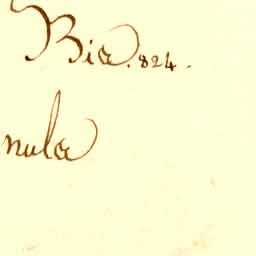 Biæ. 824.
nulæ